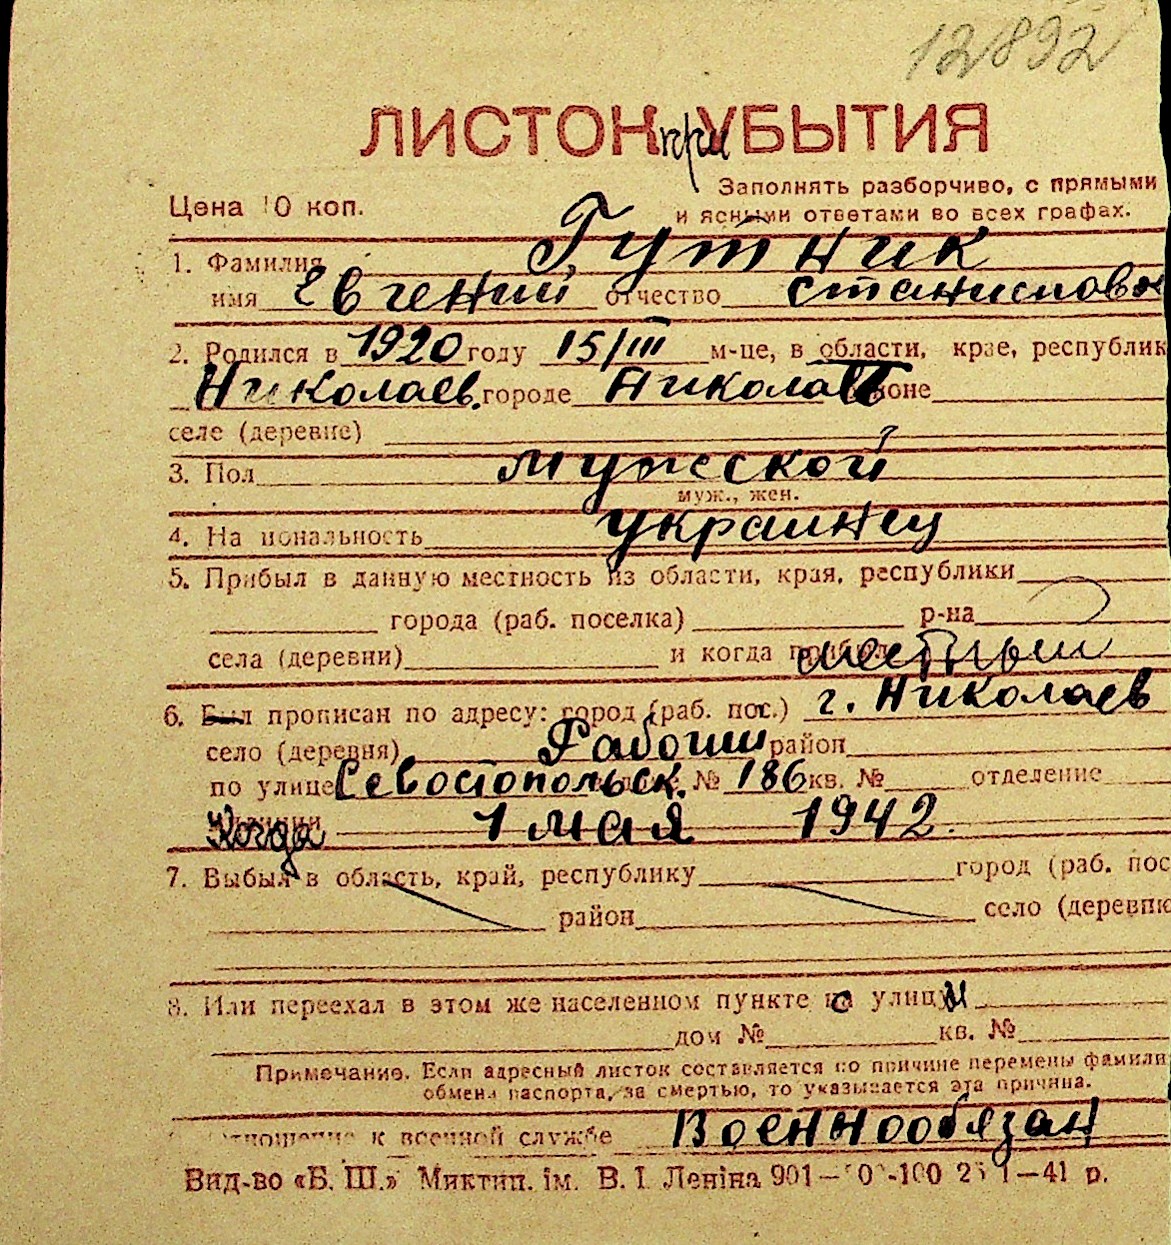 12892
ЛИСТОК при УБЫТИЯ
Заполнять разборчиво, с прямыми
Цена 10 коп. и ясными ответами во всех графах.
1. Фамилия Гутник
имя Евгений отчество Станиславов
2. Родился в 1920 году 15/III м-це, в области, крае, республик
Николаев. городе Николаев районе
селе (деревне)
3. Пол мужской
муж., жен.
4. Национальность украинец
5. Прибыл в данную местность из области, края, республики
города (раб. поселка) р-на
села (деревни) и когда прибыл местный
6. Был прописан по адресу: город (раб. пос.) г. Николаев
село (деревня) район
по улице Севостопольск. № 186 кв. № отделение
Когда 1 мая 1942.
7. Выбыл в область, край, республику город (раб. пос
район село (деревню
8. Или переехал в этом же населенном пункте с улицы
дом № кв. №
Примечание. Если адресный листок составляется по причине перемены фамилии
обмена паспорта, за смертью, то указывается эта причина.
отношение к военной службе Военнообязан
Вид-во «Б. Ш.» Миктип. ім. В. І. Леніна 901— -100 —41 р.